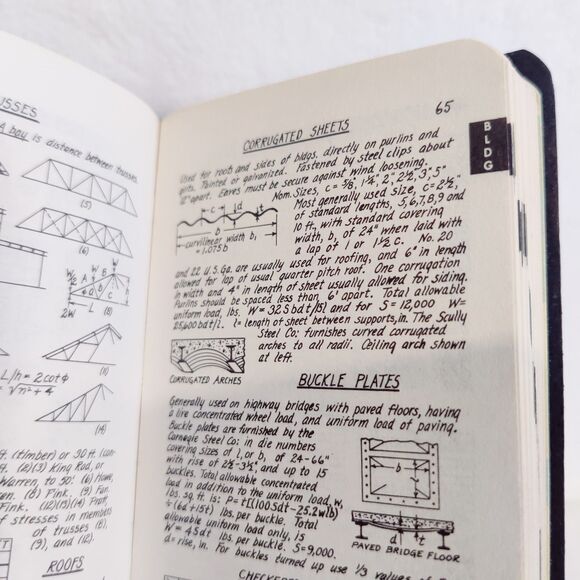 USSES
A bay is distance between trusses.
(5)
(6)
W
W/2
W/2
a
b
c
2W
L
(8)
L/h = 2cotφ
= √n²+4
(11)
(14)
ft. (timber) or 30 ft. (con-
ft. (2)(3) King Rod, or
Warren, to 50'. (6) Howe,
(8) Fink. (9) Fan.
Fink. (12)(13)(14) Pratt,
of stresses in members
of trusses (8),
(9), and (12).
ROOFS
65
BLDG
CORRUGATED SHEETS
Used for roofs and sides of bldgs. directly on purlins and
girts. Painted or galvanized. Fastened by steel clips about
12" apart. Eaves must be secure against wind loosening.
Nom. Sizes, c = 5/8, 1¼", 2", 2½", 3", 5"
Most generally used size, c = 2½",
of standard lengths, 5,6,7,8,9 and
10 ft., with standard covering
width, b, of 24" when laid with
a lap of 1 or 1½ c. No. 20
c
d
t
b
curvilinear width b,
= 1.075b
and 22 U.S.Ga. are usually used for roofing, and 6" in length
allowed for lap of usual quarter pitch roof. One corrugation
in width and 4" in length of sheet usually allowed for siding.
Purlins should be spaced less than 6' apart. Total allowable
uniform load, lbs. W =
and for S = 12,000 W =
25,600 bdt/l. l = length of sheet between supports, in. The Scully
Steel Co. furnishes curved corrugated
arches to all radii. Ceiling arch shown
at left.
CORRUGATED ARCHES
BUCKLE PLATES
Generally used on highway bridges with paved floors, having
a live concentrated wheel load, and uniform load of paving.
Buckle plates are furnished by the
Carnegie Steel Co. in die numbers
covering sizes of l, or b, of 24-66"
with rise of 2½-3½", and up to 15
buckles. Total allowable concentrated
load in addition to the uniform load, w,
lbs. sq. ft. is: P =
÷ (6d + 15t) lbs. per buckle. Total
allowable uniform load only, is
W = 4Sdt lbs. per buckle. S = 9,000.
d = rise, in. For buckles turned up use 1/3 values
b
l
d
t
PAVED BRIDGE FLOOR